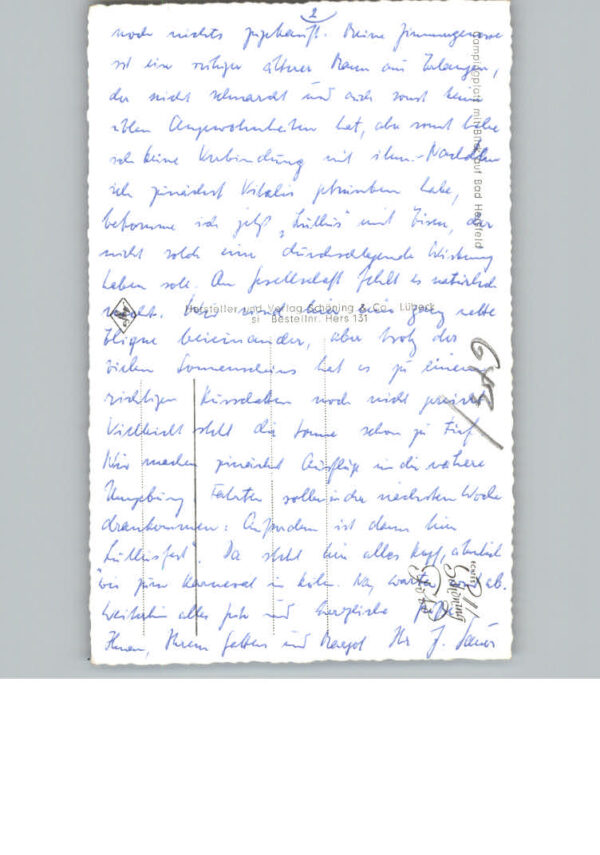 2
noch nichts
ist eine ruhiger älterer Mann aus Erlangen,
der nicht schnarcht und auch sonst keine
üblen Angewohnheiten hat, aber sonst habe
ich keine Verbindung mit ihm. - Nachdem
ich zunächst Vitalis getrunken habe,
bekomme ich jetzt "Lullus" mit Eisen, der
nicht solch eine durchschlagende Wirkung
haben soll. An Gesellschaft fehlt es natürlich
nicht. Wir sind hier eine ganz nette
Clique beieinander, aber trotz des
vielen Sonnenscheins hat es zu einem
richtigen Kurschatten noch nicht gereicht.
Vielleicht steht die Sonne schon zu tief.
Wir machen zunächst Ausflüge in die nähere
Umgebung. Fahrten sollen in der nächsten Woche
drankommen. Außerdem ist dann hier
"Lullusfest". Da steht hier alles Kopf, ähnlich
wie zum Karneval in Köln. Na, warten ab.
Weiterhin alles Gute und herzliche Grüße
Ihnen, Ihrem Gatten und Margot Ihr J.
mit Blick auf Bad Hersfeld
Hersteller und Verlag Schöning & Co., Lübeck
si Bestellnr. Hers 131
Schöning